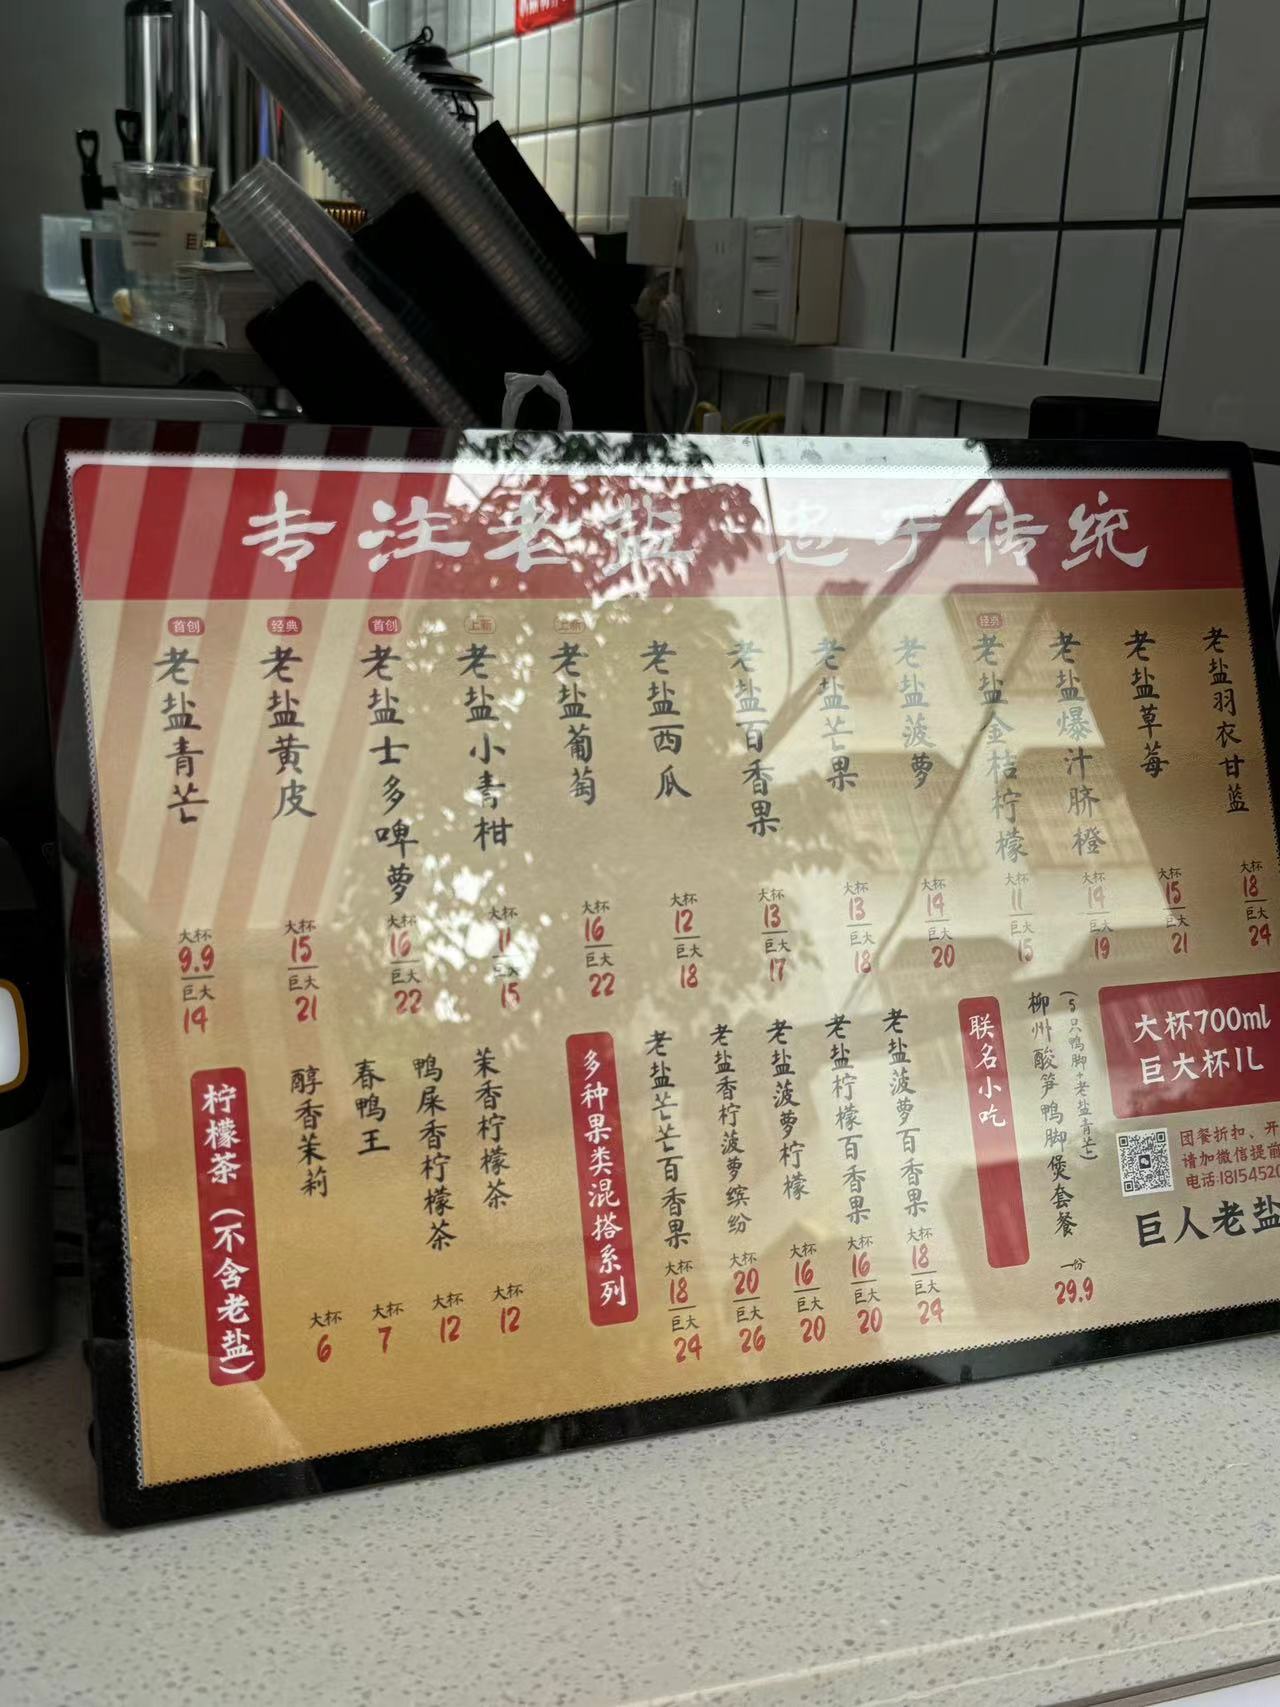 专注老盐 忠于传统
首创
老盐青芒
大杯
9.9
巨大
14
经典
老盐黄皮
大杯
15
巨大
21
首创
老盐士多啤萝
大杯
16
巨大
22
上新
老盐小青柑
大杯
11
巨大
15
上新
老盐葡萄
大杯
16
巨大
22
老盐西瓜
大杯
12
巨大
18
老盐百香果
大杯
13
巨大
17
老盐芒果
大杯
13
巨大
18
老盐菠萝
大杯
14
巨大
20
经典
老盐金桔柠檬
大杯
11
巨大
15
老盐爆汁脐橙
大杯
14
巨大
19
老盐草莓
大杯
15
巨大
21
老盐羽衣甘蓝
大杯
18
巨大
24
柠檬茶（不含老盐）
醇香茉莉
大杯
6
春鸭王
大杯
7
鸭屎香柠檬茶
大杯
12
茉香柠檬茶
大杯
12
多种果类混搭系列
老盐芒芒百香果
大杯
18
巨大
24
老盐香柠菠萝缤纷
大杯
20
巨大
26
老盐菠萝柠檬
大杯
16
巨大
20
老盐柠檬百香果
大杯
16
巨大
20
老盐菠萝百香果
大杯
18
巨大
24
联名小吃
柳州酸笋鸭脚煲套餐
（5只鸭脚+老盐青芒）
一份
29.9
大杯700ml
巨大杯1L
团餐折扣、开
请加微信提前
电话:18154520
巨人老盐